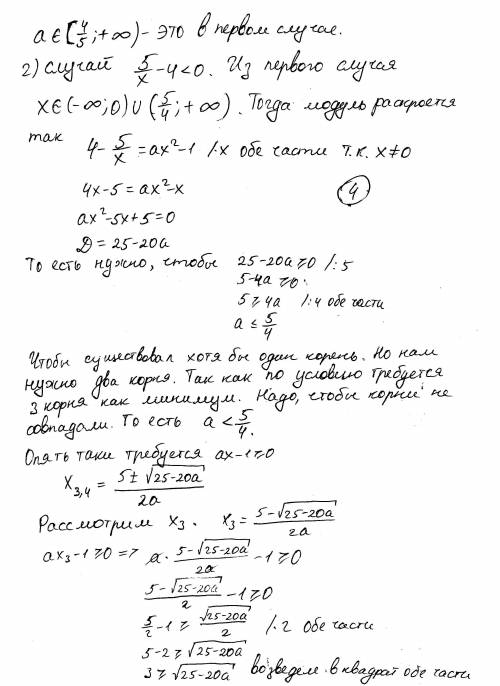 a∈[4/5;+∞) – это в первом случае.
2) случай 5/x - 4 < 0. Из первого случая
x∈(-∞;0)∪(5/4;+∞). Тогда модуль раскроется
так 4 - 5/x = ax²-1 /·x обе части т.к. x≠0
4x-5 = ax²-x
④
ax²-5x+5=0
D = 25-20a
То есть нужно, чтобы 25-20a ≥ 0 /:5
5-4a ≥ 0
5 ≥ 4a /:4 обе части
a ≤ 5/4
Чтобы существовал хотя бы один корень. Но нам
нужно два корня. Так как по условию требуется
3 корня как минимум. Надо, чтобы корни не
совпадали. То есть a < 5/4.
Опять таки требуется ax-1≥0
x₃,₄ = (5±√(25-20a))/2a
Рассмотрим x₃. x₃ = (5-√(25-20a))/2a
ax₃-1≥0 => a·(5-√(25-20a))/2a - 1 ≥ 0
(5-√(25-20a))/2 - 1 ≥ 0
5/2 - 1 ≥ √(25-20a)/2 /·2 обе части
5-2 ≥ √(25-20a)
3 ≥ √(25-20a) возведем в квадрат обе части